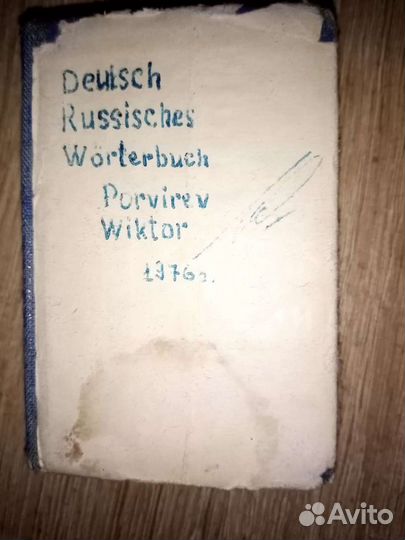 Deutsch
Russisches
Wörterbuch
Porvirev
Wiktor
1976г.
Avito